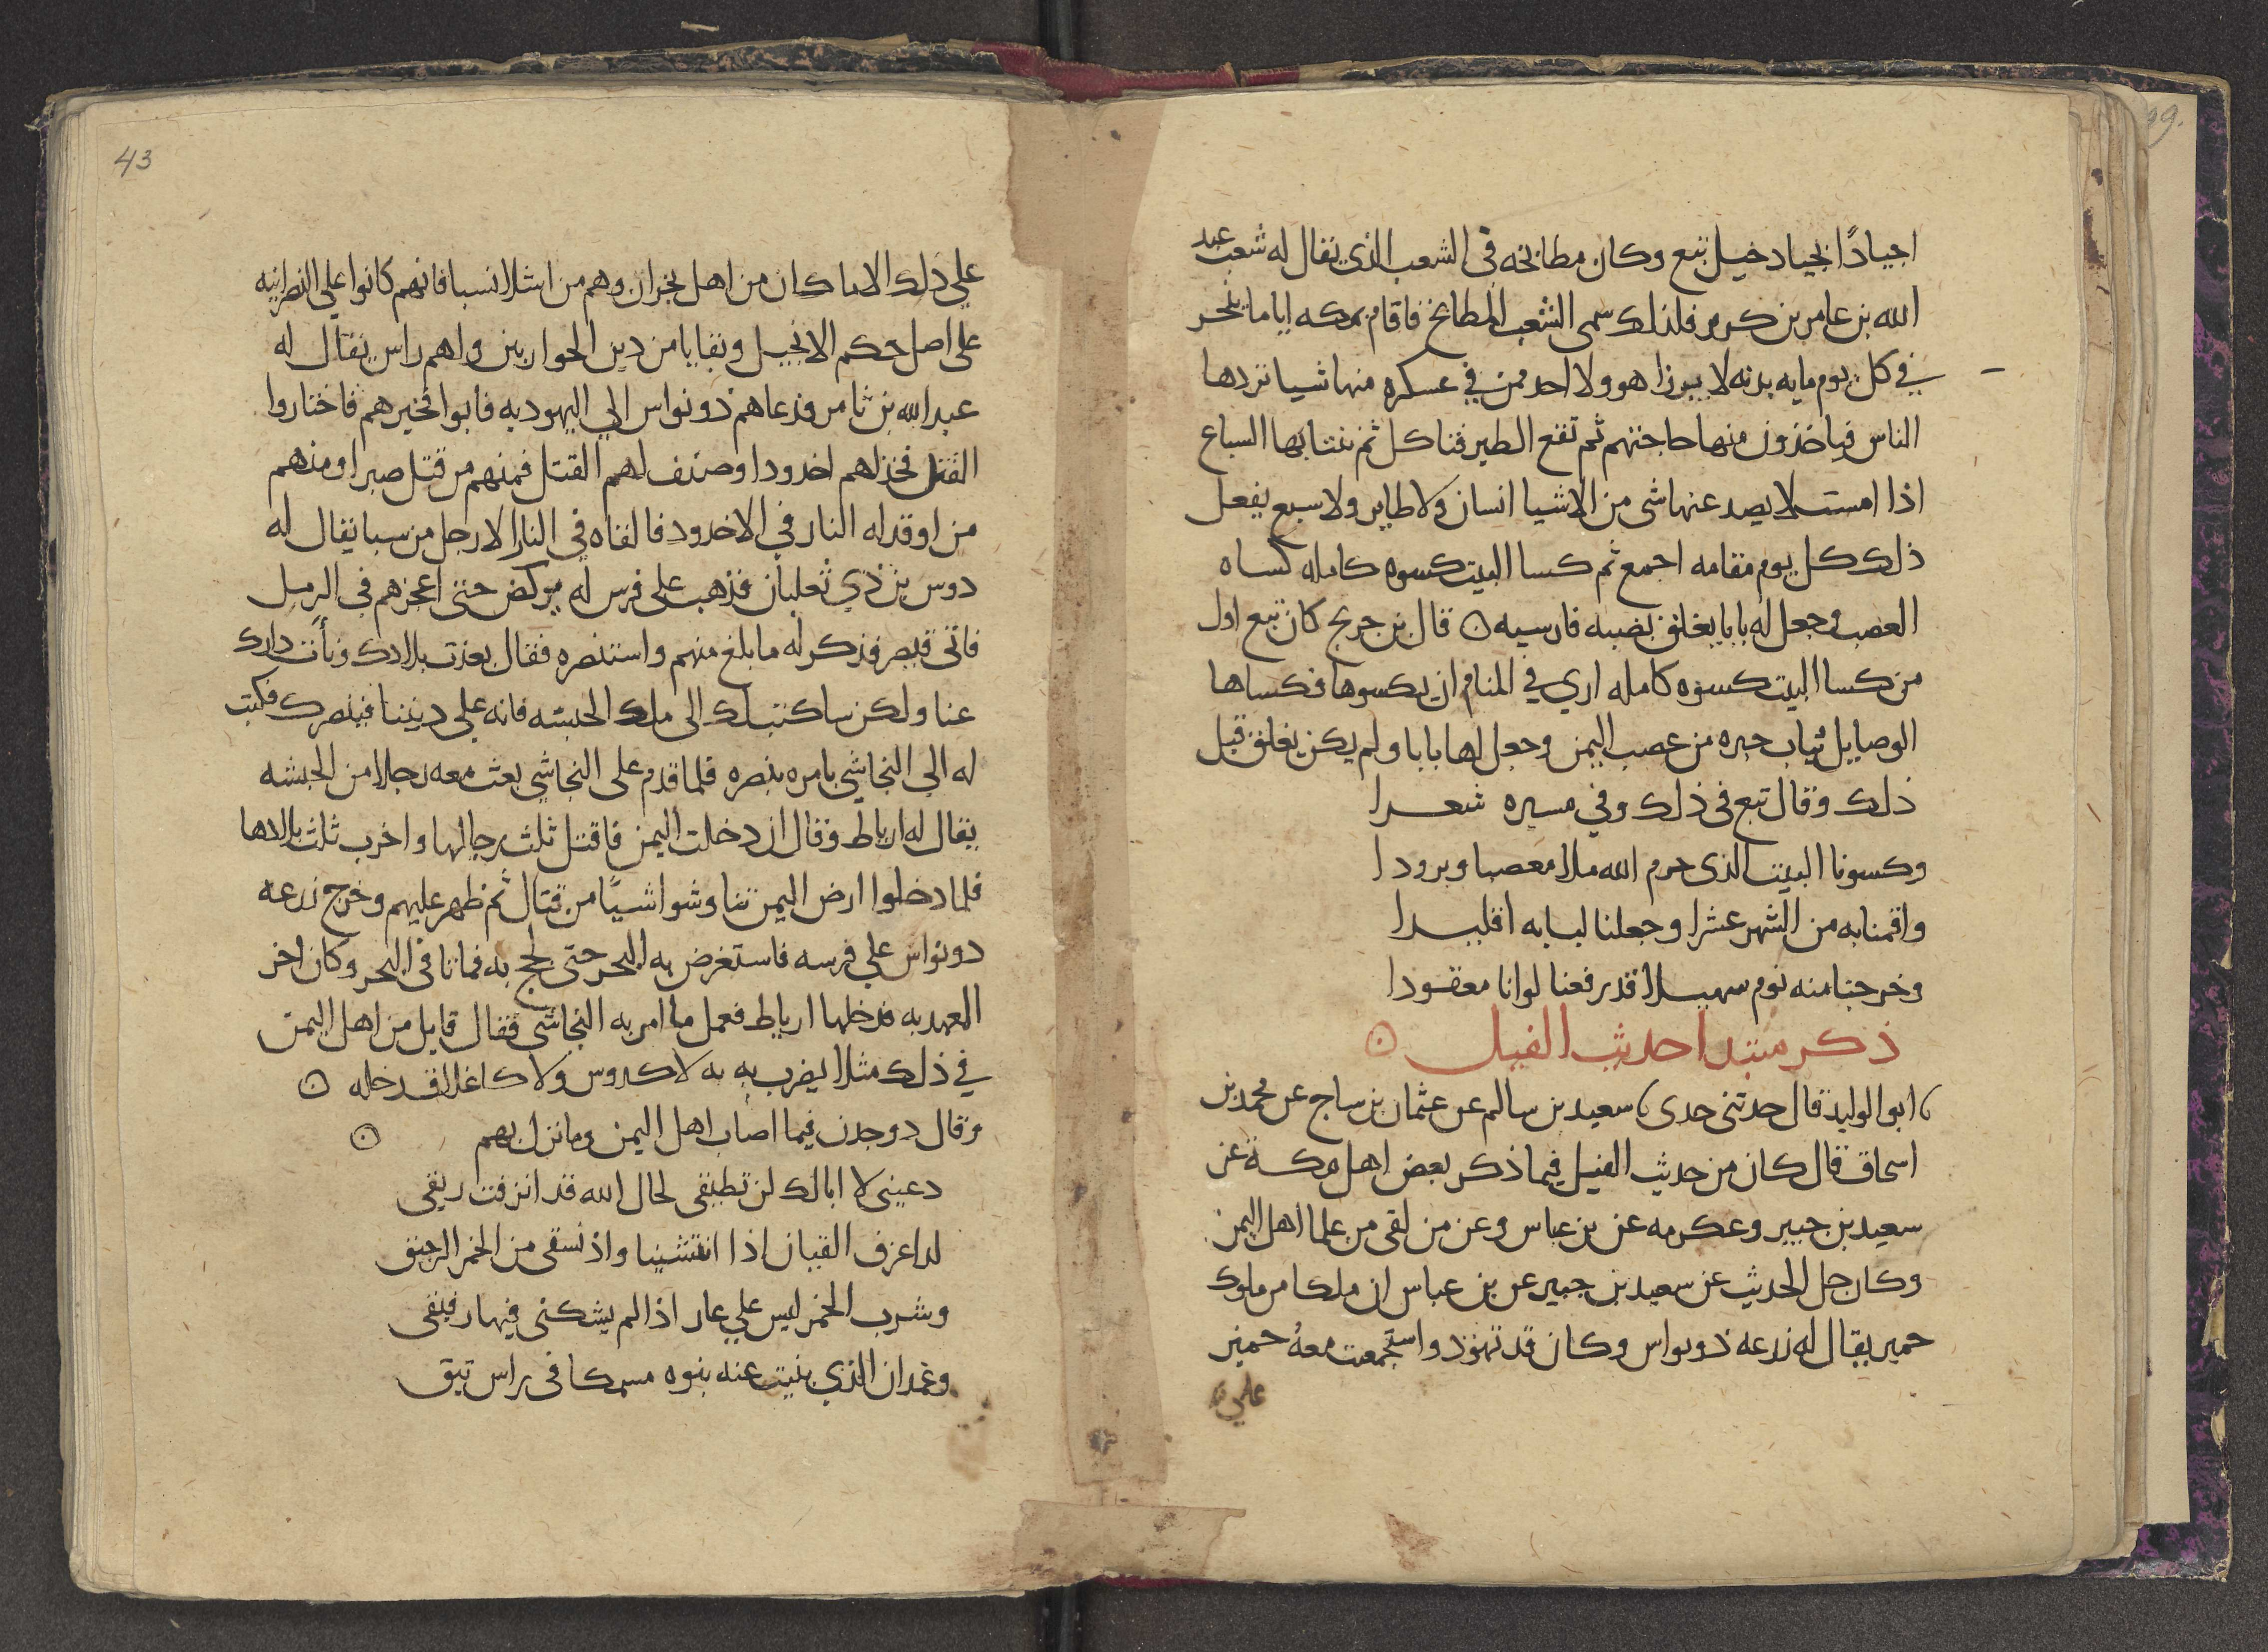 اجيادًا بجياد خيل تبع وكان مطابخه في الشعب الذي يقال له شعب عبد
الله بن عامر بن كريز فلذلك سمى الشعب المطابخ فاقام بمكه اياما ينحر
في كل يوم مايه بدنه لا يرزا هو ولا احد ممن في عسكره منها شيا تردها
الناس فياخذون منها حاجتهم ثم تقع الطير فتاكل ثم تنتابها السباع
اذا امست لا يصد عنها شى من الاشيا انسان ولا طاير ولا سبع يفعل
ذلك كل يوم مقامه اجمع ثم كسا البيت كسوه كامله كساه
العصب وجعل له بابا يغلق بضبه فارسيه ۞ قال بن جريج كان تبع اول
من كسا البيت كسوه كامله اري في المنام ان يكسوها فكساها
الوصايل ثياب حبره من عصب اليمن وجعل لها بابا ولم يكن يغلق قبل
ذلك وقال تبع في ذلك وفي مسيره شعرا
وكسونا البيت الذى حرم الله ملا معصبا وبرودا
واقمنا به من الشهر عشرا وجعلنا لبابه اقليدا
وخرجنا منه نوم سهيلا قد رفعنا لوانا معقودا
ذكر مبتدا حديث الفيل ۞
ابو الوليد قال حدثنى جدى سعيد بن سالم عن عثمان بن ساج عن محمد بن
اسحاق قال كان من حديث الفيل فيما ذكر بعض اهل مكة عن
سعيد بن جبير وعكرمه عن بن عباس وعن من لقى من علما اهل اليمن
وكان جل الحديث عن سعيد بن جبير عن بن عباس ان ملكا من ملوك
حمير يقال له زرعه ذو نواس وكان قد تهود واستجمعت معه حمير
علي
43
علي ذلك الا ما كان من اهل نجران وهم من اشلا نسبا فانهم كانوا علي النصرانيه
على اصل حكم الانجيل وبقايا من دين الحواريين ولهم راس يقال له
عبد الله بن ثامر فدعاهم ذو نواس الي اليهوديه فابوا فخيرهم فاختاروا
القتل فخد لهم اخدودا وصنف لهم القتل فمنهم من قتل صبرا ومنهم
من اوقد له النار في الاخدود فالقاه في النار الا رجل من سبا يقال له
دوس بن ذي ثعلبان فذهب على فرس له يركض حتى اعجزهم في الرمل
فاتى قيصر فذكر له ما بلغ منهم واستنصره فقال بعدت بلادك ونأت دارك
عنا ولكن ساكتب لك الى ملك الحبشه فانه علي ديننا فينصرك فكتب
له الي النجاشي يامره بنصره فلما قدم على النجاشي بعث معه رجلا من الحبشه
يقال له ارباط وقال ان دخلت اليمن فاقتل ثلث رجالها واخرب ثلث بلادها
فلما دخلوا ارض اليمن تناوشوا شيًا من قتال ثم ظهر عليهم وخرج زرعه
دونواس علي فرسه فاستعرض به البحر حتى لجج به فماتا في البحر وكان اخر
العهد به فدخلها ارباط فعمل ما امر به النجاشي فقال قايل من اهل اليمن
في ذلك مثلا يضرب به لا كدوس ولا كاغلاق رحله ۞
وقال دو جدن فيما اصاب اهل اليمن وما نزل بهم ۞
دعيني لا ابالك لن تطيقى لحال الله قد انزفت ريقى
لدا عزف القيان اذا انتشينا واذ نسقى من الخمر الرحيق
وشرب الخمر ليس علي عار اذا لم يشكنى فيها رفيقى
وغمدان الذي بنيت عنه بنوه مسمكا في راس نيق